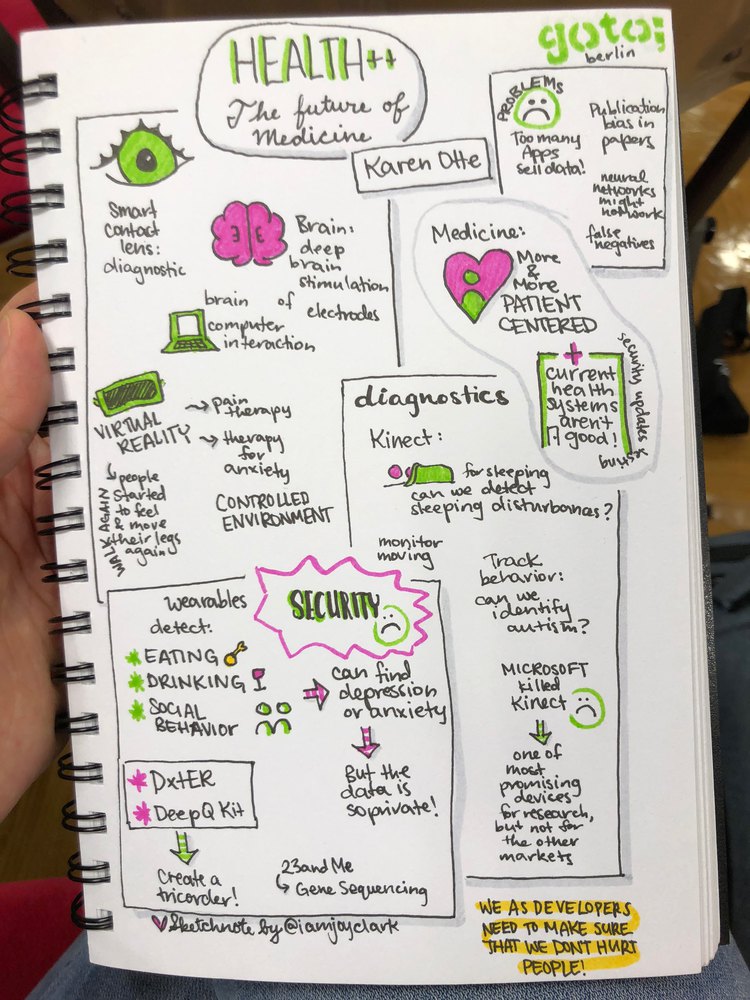 HEALTH++
The future of
Medicine
goto;
berlin
Karen Otte
PROBLEMS
Too many
Apps
sell data!
Publication
bias in
papers
neural
networks
might
not work
false
negatives
Smart
contact
lens:
diagnostic
Brain:
deep
brain
stimulation
of
electrodes
brain
computer
interaction
Medicine:
More
&
More
PATIENT
CENTERED
+
current
health
systems
aren't
good!
security updates
VIRTUAL
REALITY
→ Pain
therapy
→ therapy
for
anxiety
CONTROLLED
ENVIRONMENT
WALK AGAIN
people
started
to feel
& move
their legs
again
diagnostics
Kinect:
for sleeping
can we detect
sleeping disturbances?
monitor
moving
Track
behavior:
can we
identify
autism?
MICROSOFT
killed
Kinect
one of
most
promising
devices
for research,
but not for
the other
markets
SECURITY
wearables
detect:
* EATING
* DRINKING
* SOCIAL
BEHAVIOR
can find
depression
or anxiety
But the
data is
so private!
* DxtER
* DeepQ Kit
Create a
tricorder!
23andMe
Gene Sequencing
Sketchnote by @iamjoyclark
WE AS DEVELOPERS
NEED TO MAKE SURE
THAT WE DON'T HURT
PEOPLE!